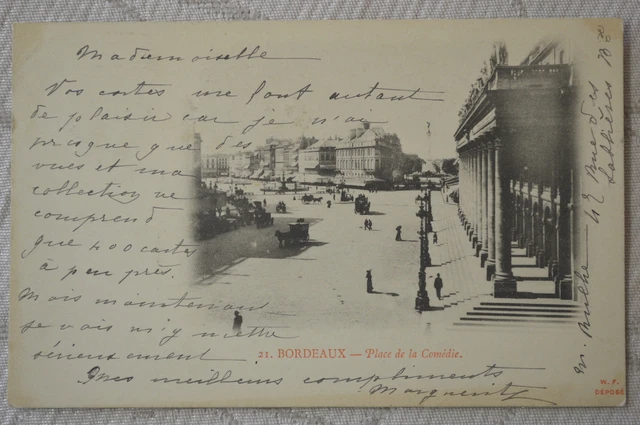 Mademoiselle
Vos cartes me font autant
de plaisir car je n'ai
presque que des
vues et ma
collection ne
comprend
que 400 cartes
à peu près.
Mais maintenant
je vais m'y mettre
sérieusement
Mes meilleurs compliments
Marguerite
42 Rue des
21. BORDEAUX — Place de la Comédie.
W. F.
DÉPOSÉ